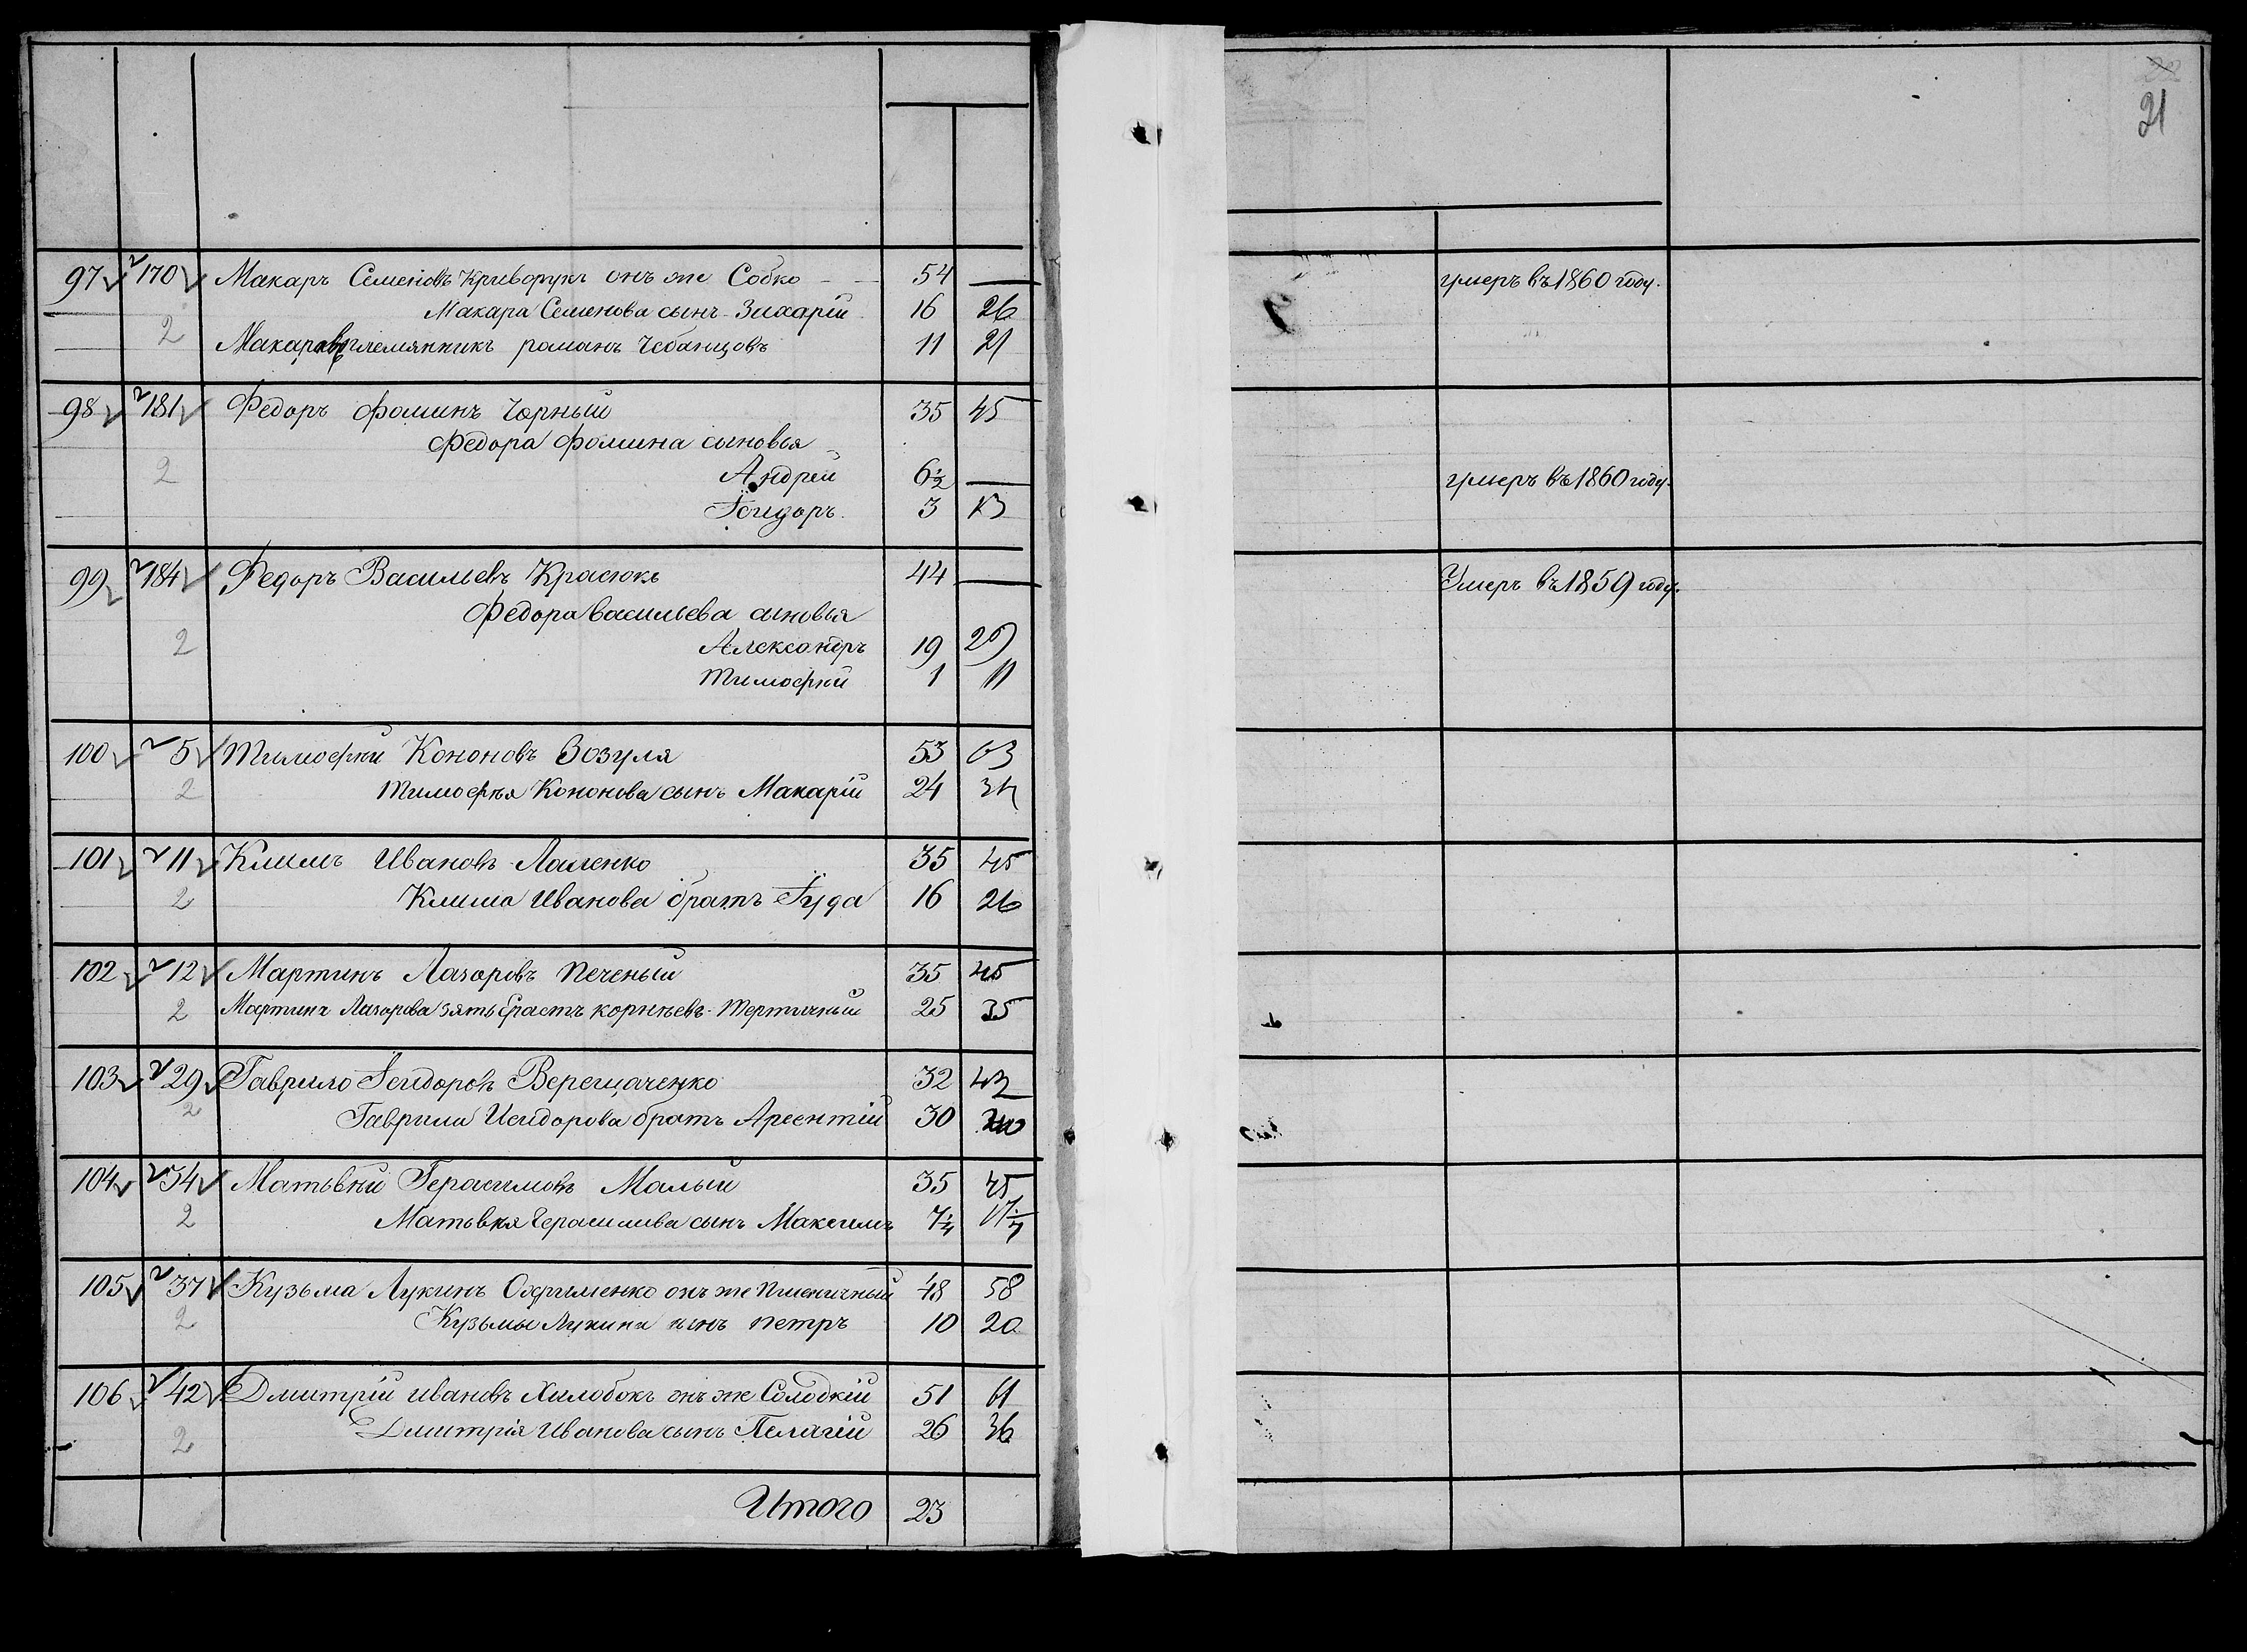 22
21
97 2 170 Макаръ Семеновъ Криворукъ онъ же Собко 54 — умеръ въ 1860 году.
Макара Семенова сынъ Захарій 16 26
2 Макаровъ племянникъ романъ Чебанцовъ 11 21
98 2 181 Федоръ Фоминъ Чорный 35 45
Федора Фомина сыновья
2 Андрей 6½ — умеръ въ 1860 году.
Ісидоръ 3 13
99 2 184 Федоръ Васильевъ Красюкъ 44 — Умеръ въ 1859 году.
Федора Васильева сыновья
2 Александръ 19 29
Тимофѣй 1 11
100 2 5 Тимофѣй Кононовъ Зозуля 53 63
2 Тимофѣя Кононова сынъ Макарій 24 34
101 2 11 Климъ Ивановъ 35 45
2 Клима Иванова братъ Іуда 16 26
102 2 12 Мартинъ Лазоровъ Печеный 35 45
2 Мартина Лазорева зять Ерастъ Корнѣевъ Тертичный 25 35
103 2 29 Гаврило Ісидоровъ Верещаченко 32 42
2 Гаврила Исидорова братъ Арсентій 30 40
104 2 34 Матьвѣй Герасимовъ Малый 35 45
2 Матьвѣя Герасимова сынъ Максимъ 7¼ 17¼
105 2 37 Кузьма Лукинъ Охрименко онъ же Пшеничный 48 58
2 Кузьмы Лукина сынъ Петръ 10 20
106 2 42 Дмитрій Ивановъ Хилобокъ онъ же Солодкій 51 61
2 Дмитрія Иванова сынъ Пелагій 26 36
Итого 23